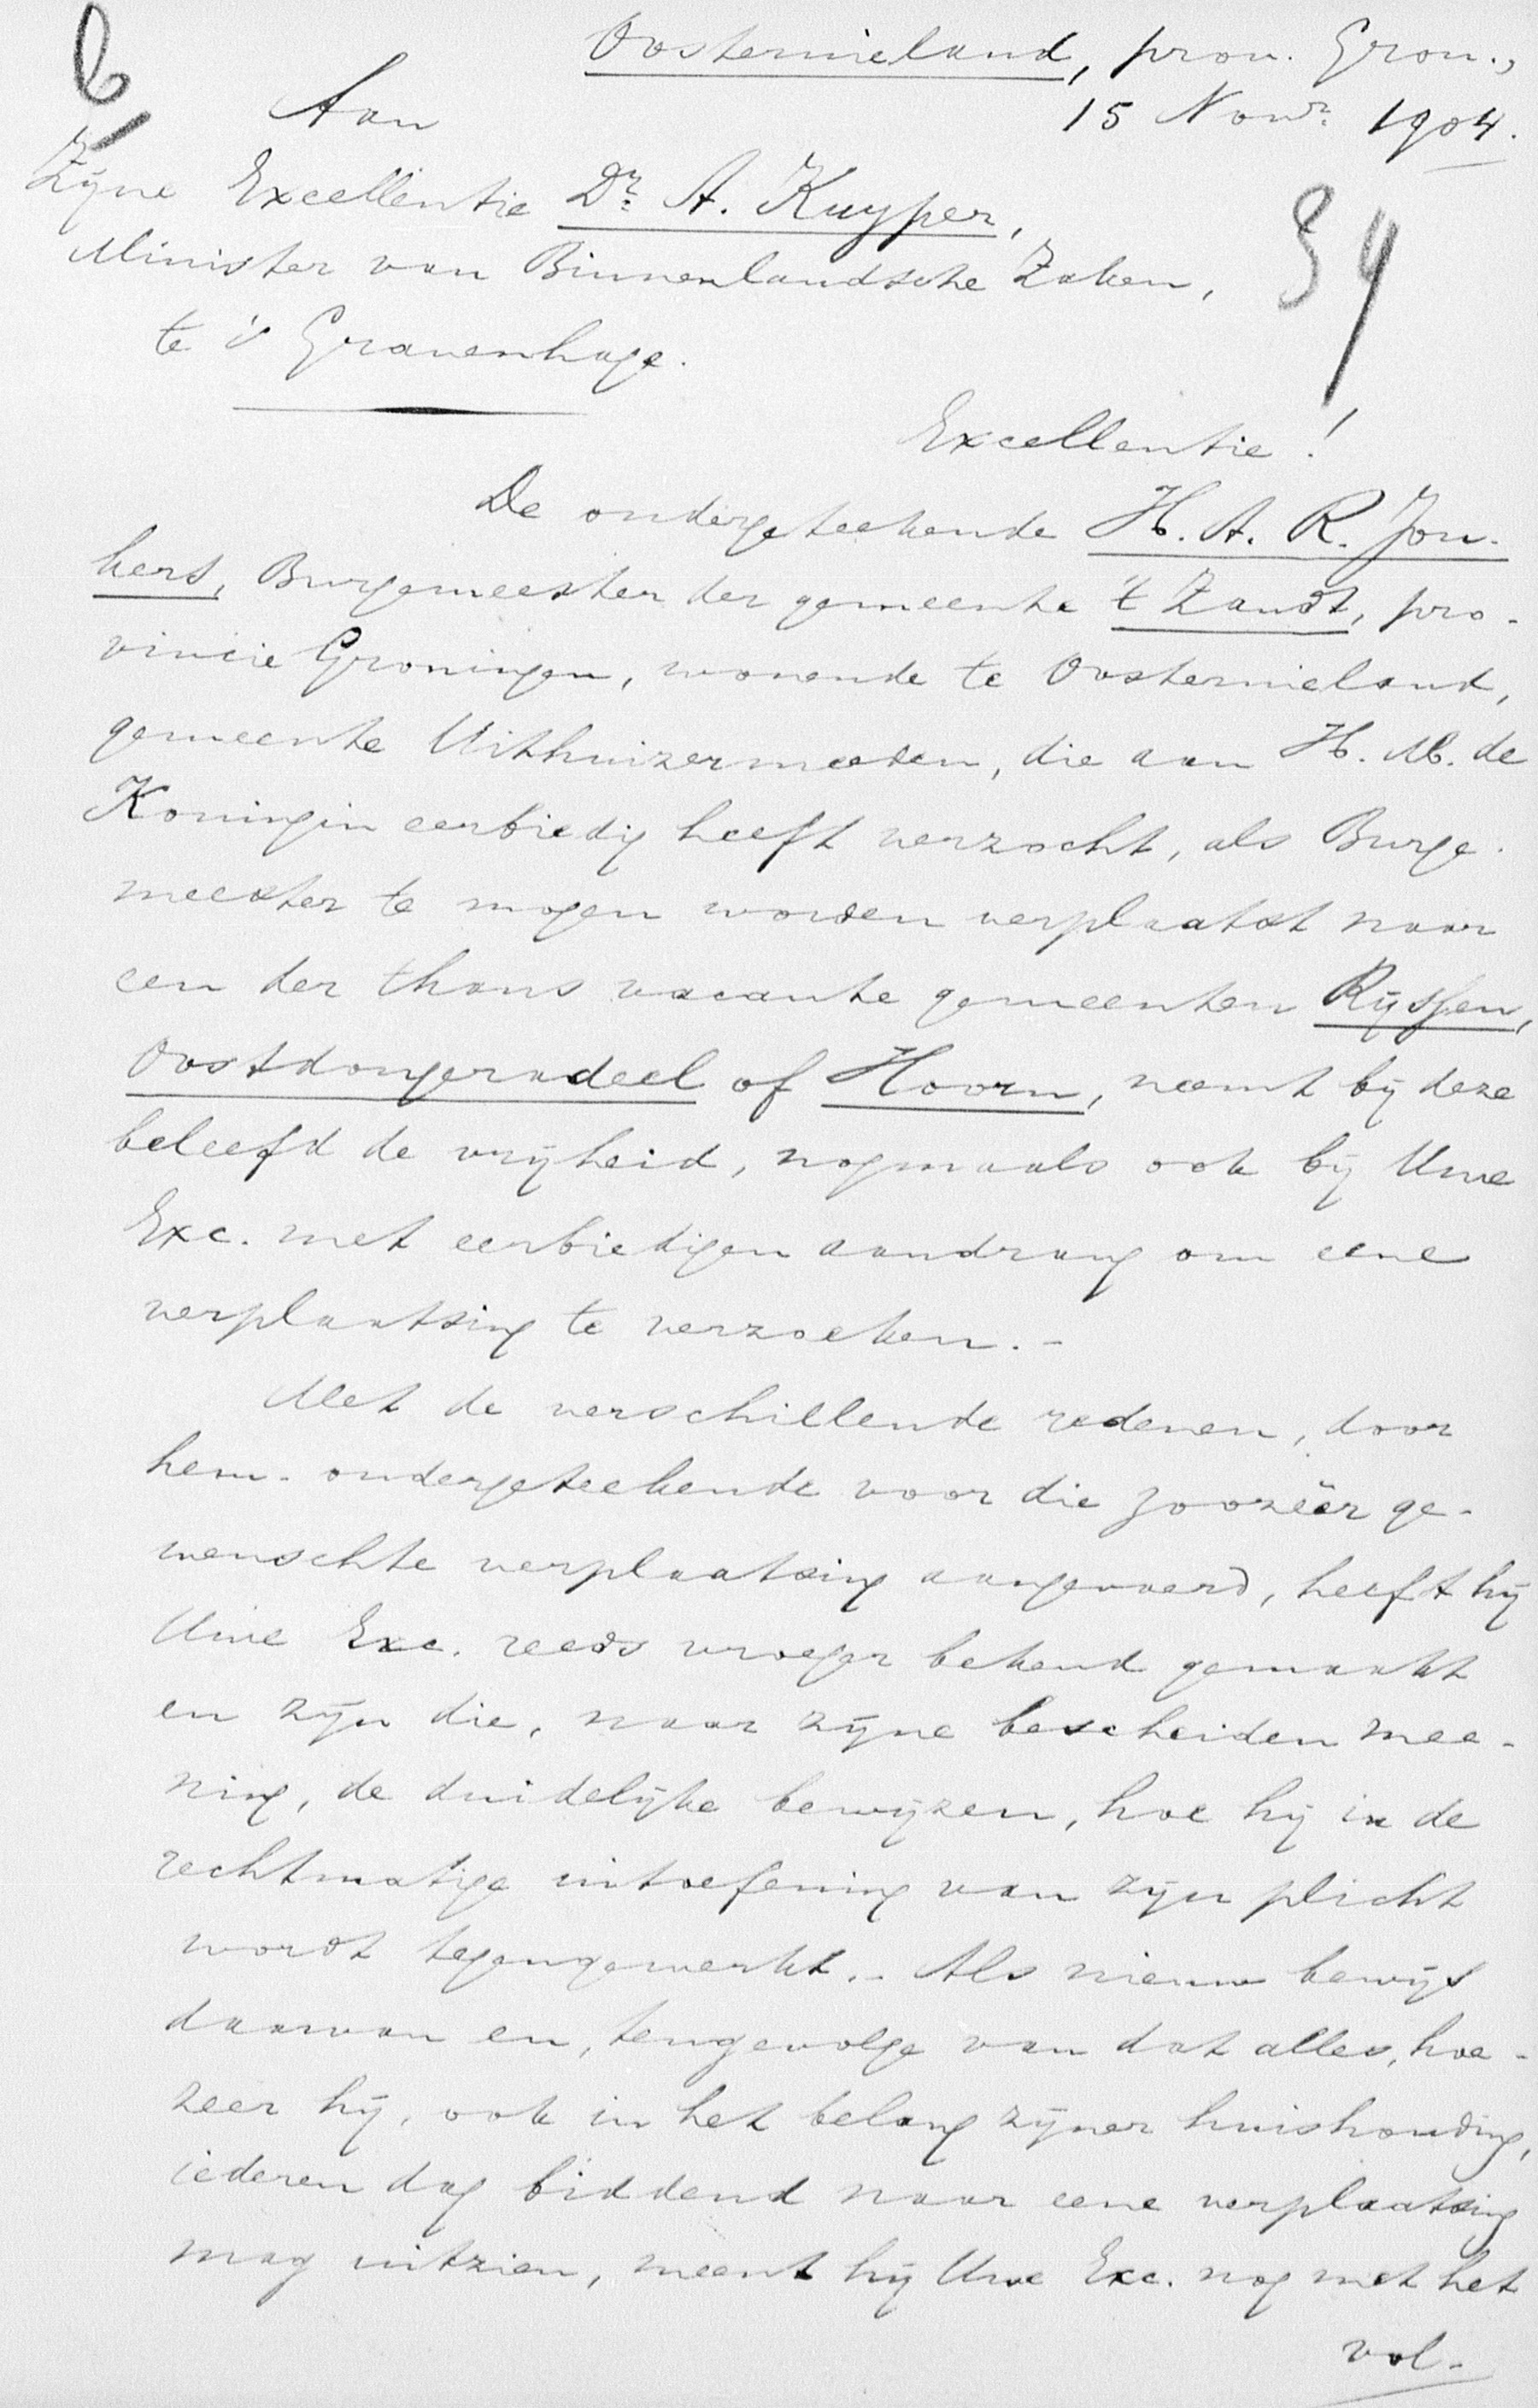 b
Oosternieland, prov. Gron.,
15 Novr. 1904.
Aan
Zijne Excellentie Dr. A. Kuyper,
Minister van Binnenlandsche Zaken,
te 's Gravenhage.
Excellentie!
De ondergeteekende H. A. R. Jon-
kers, Burgemeester der gemeente 't Zandt, pro-
vincie Groningen, wonende te Oosternieland,
gemeente Uithuizermeeden, die aan H. M. de
Koningin eerbiedig heeft verzocht, als Burge-
meester te mogen worden verplaatst naar
een der thans vacante gemeenten Rijssen,
Oostdongeradeel of Hoorn, neemt bij deze
beleefd de vrijheid, nogmaals ook bij Uwe
Exc. met eerbiedigen aandrang om eene
verplaatsing te verzoeken. -
Met de verschillende redenen, door
hem - ondergeteekende voor die zoozéér ge-
wenschte verplaatsing aangevoerd, heeft hij
Uwe Exc. reeds vroeger bekend gemaakt
en zijn die, naar zijne bescheiden mee-
ning, de duidelijke bewijzen, hoe hij in de
rechtmatige uitoefening van zijn plicht
wordt tegengewerkt. - Als nieuw bewijs
daarvan en, tengevolge van dat alles, hoe-
zeer hij, ook in het belang zijner huishouding,
iederen dag biddend naar eene verplaatsing
mag uitzien, meent hij Uwe Exc. nog met het
vol-